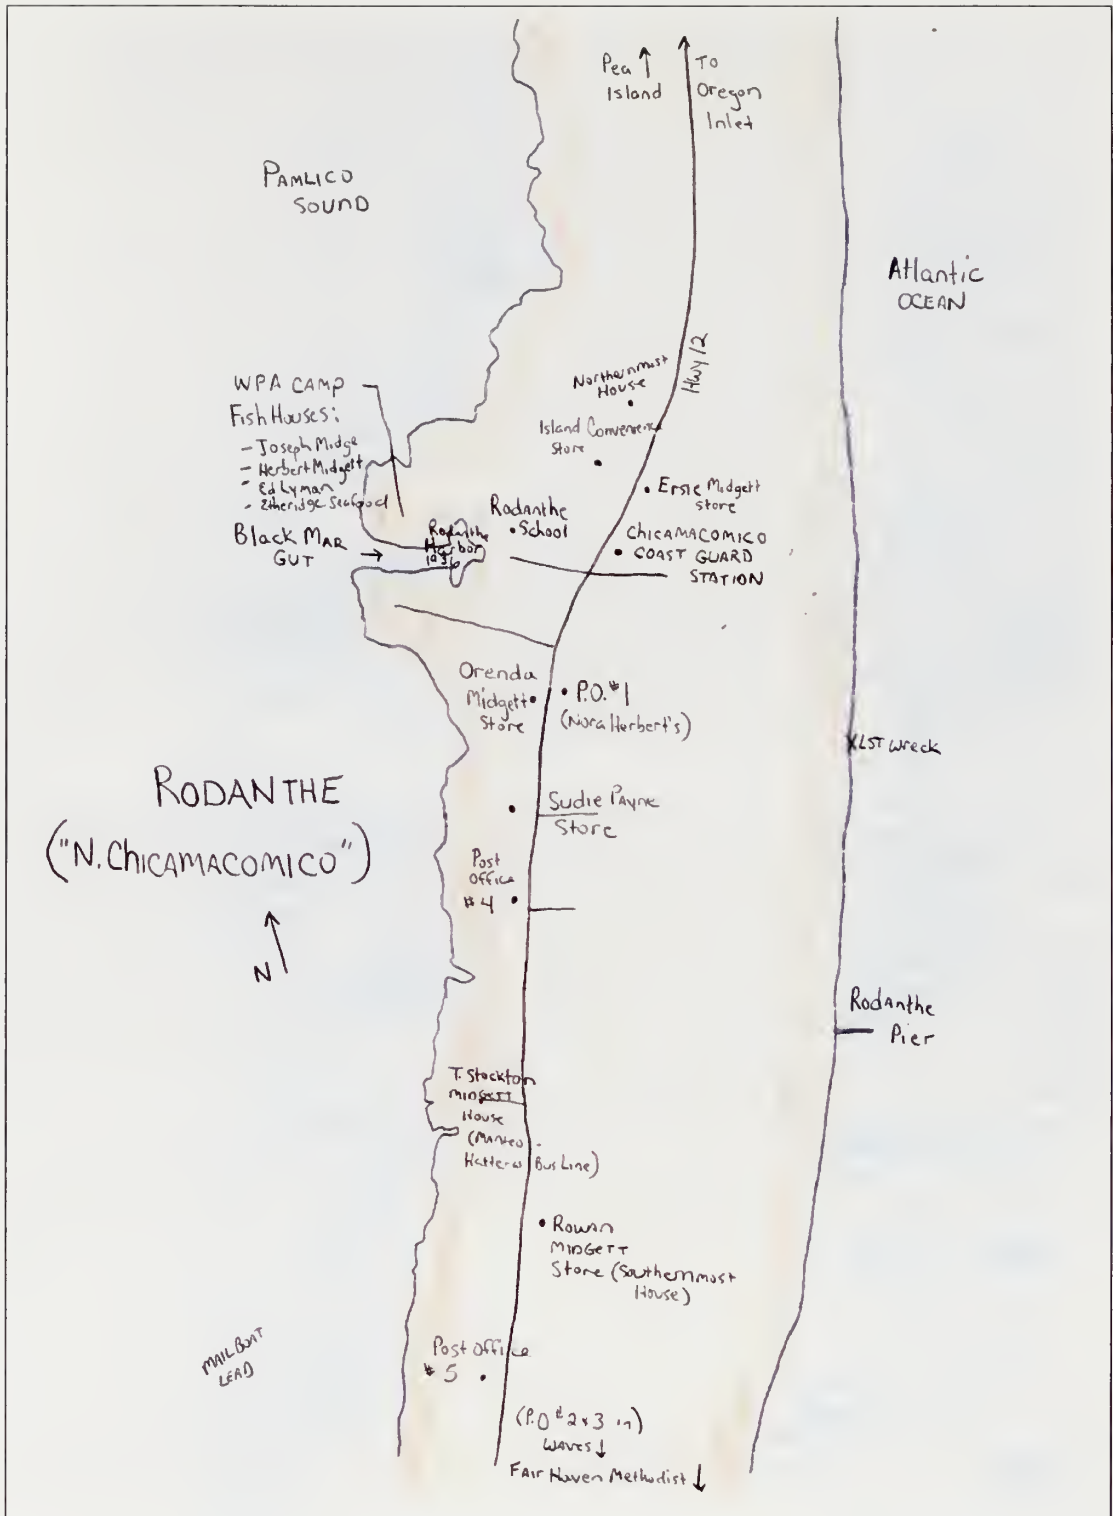 Pea
Island
TO
Oregon
Inlet
PAMLICO
SOUND
Atlantic
OCEAN
Hwy 12
Northernmost
House
WPA CAMP
Fish Houses:
- Joseph Midge
- Herbert Midgett
- Ed Lyman
- Etheridge Seafood
Island Convenience
Store
Ersie Midgett
Store
Rodanthe
School
Rodanthe
Harbor
1936
Black MAR
GUT
CHICAMACOMICO
COAST GUARD
STATION
Orenda
Midgett
Store
P.O. #1
(Nora Herbert's)
X LST Wreck
RODANTHE
("N. CHICAMACOMICO")
Sudie Payne
Store
Post
Office
#4
N
Rodanthe
Pier
T. Stockton
MIDGETT
House
(Manteo -
Hatteras Bus Line)
Rowan
MIDGETT
Store (Southernmost
House)
MAIL BOAT
LEAD
Post Office
#5
(P.O # 2 & 3 in)
WAVES
FAIR Haven Methodist